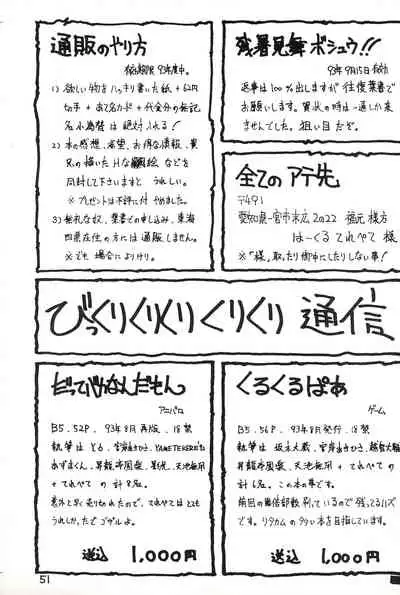 通販のやり方
有効期限 93年度中。
1) 欲しい物をハッキリ書いた紙 + 62円
切手 + あて名カード + 代金分の無記
名小為替 は 絶対 入れる!
2) 本の感想、希望、お得な情報、貴
兄の描いた Hな願絵 などを
同封して下さいますと うれしい。
※ プレゼントは不評に付 やめました。
3) 無礼な奴、葉書での申し込み、東海
四県在住の方には通販しません。
※でも 場合によりけり。
残暑見舞ボシュウ!!
93年9月15日有効
返事は100%出しますが往復葉書で
お願いします。賀状の時は一通しか来
ませんでした。狙い目だぞ。
全てのアテ先
〒491
愛知県一宮市末広2の22 様方
はーくるてれぺて 様
※「様」取ったり御中にしたりしない事!
びっくりくりくりくりくり通信
だってやなんだもん
アニパロ
B5. 52P. 93年8月 再版. 18禁
執筆は とも、
あずまくん、昇龍帝国愛、
+ てれぺて の 計8名。
意外と早く売り切れたので、てれぺては とても
うれしかったでゴザルよ。
送込 1,000円
くるくるぱあ
ゲーム
B5. 56P. 93年8月発行. 18禁
執筆は
昇龍帝国愛、天池無用 + てれぺての
計6名。この本の事です。
前回の倍部数刷っているので残ってるハズ
です。リタカムの少ない本を目指しています。
送込 1,000円
51